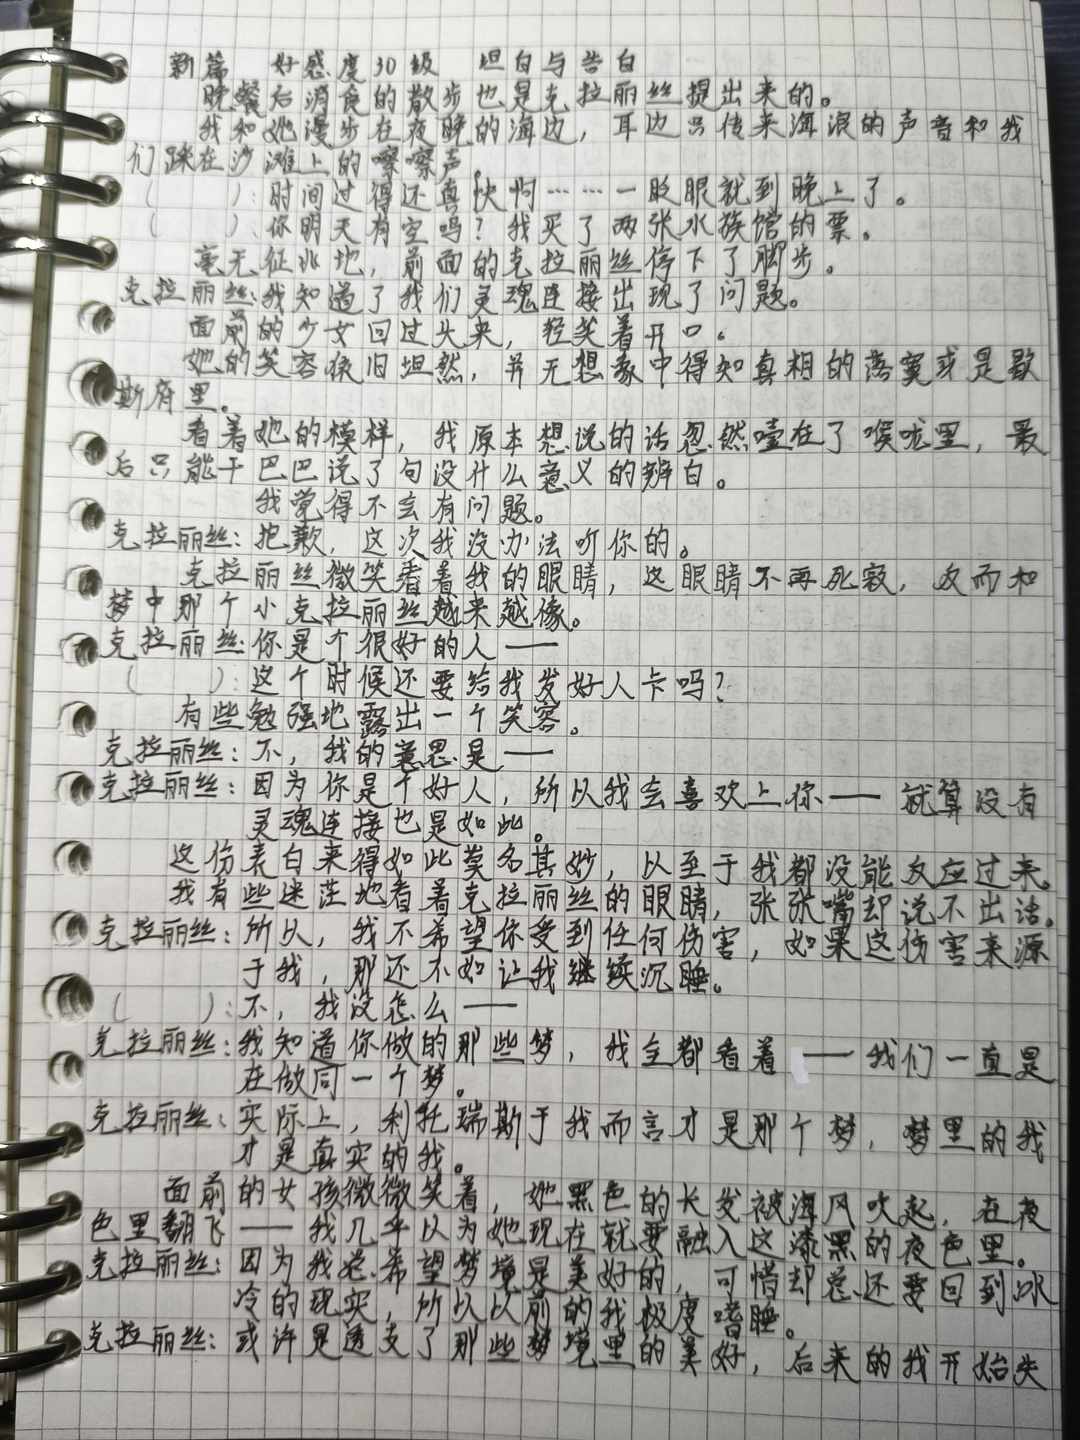 新篇 好感度30级 坦白与告白
晚餐后消食的散步也是克拉丽丝提出来的。
我和她漫步在夜晚的海边，耳边只传来海浪的声音和我
们踩在沙滩上的嚓嚓声。
( ):时间过得还真快啊……一眨眼就到晚上了。
( ):你明天有空吗？我买了两张水族馆的票。
毫无征兆地，前面的克拉丽丝停下了脚步。
克拉丽丝:我知道了我们灵魂连接出现了问题。
面前的少女回过头来，轻笑着开口。
她的笑容依旧坦然，并无想象中得知真相的落寞或是歇
斯府里。
看着她的模样，我原本想说的话忽然噎在了喉咙里，最
后只能干巴巴说了句没什么意义的辨白。
我觉得不会有问题。
克拉丽丝:抱歉，这次我没办法听你的。
克拉丽丝微笑看着我的眼睛，这眼睛不再死寂，反而和
梦中那个小克拉丽丝越来越像。
克拉丽丝:你是个很好的人——
( ):这个时候还要给我发好人卡吗？
有些勉强地露出一个笑容。
克拉丽丝:不，我的意思是——
克拉丽丝:因为你是个好人，所以我会喜欢上你——就算没有
灵魂连接也是如此。
这份表白来得如此莫名其妙，以至于我都没能反应过来。
我有些迷茫地看着克拉丽丝的眼睛，张张嘴却说不出话。
克拉丽丝:所以，我不希望你受到任何伤害，如果这伤害来源
于我，那还不如让我继续沉睡。
( ):不，我没怎么——
克拉丽丝:我知道你做的那些梦，我全都看着——我们一直是
在做同一个梦。
克拉丽丝:实际上，利托瑞斯于我而言才是那个梦，梦里的我
才是真实的我。
面前的女孩微微笑着，她黑色的长发被海风吹起，在夜
色里翻飞——我几乎以为她现在就要融入这漆黑的夜色里。
克拉丽丝:因为我总希望梦境是美好的，可惜却总还要回到冰
冷的现实，所以以前的我极度嗜睡。
克拉丽丝:或许是透支了那些梦境里的美好，后来的我开始失